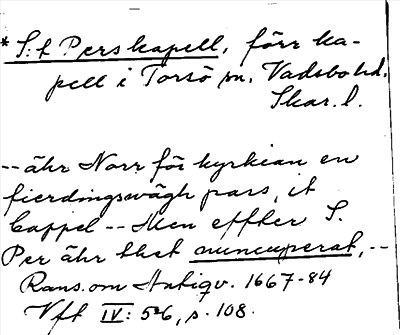 * S:t Pers kapell, förr ka-
pell i Torsö sn, Vadsbo hd,
Skar. l.
-- ähr Norr för kyrkian en
fierdingswägh pass, it
Cappel -- Men effter S.
Per ähr thet nuncuperat, --
Rans. om Antiqv. 1667-84
Vft IV: 5-6, s. 108.